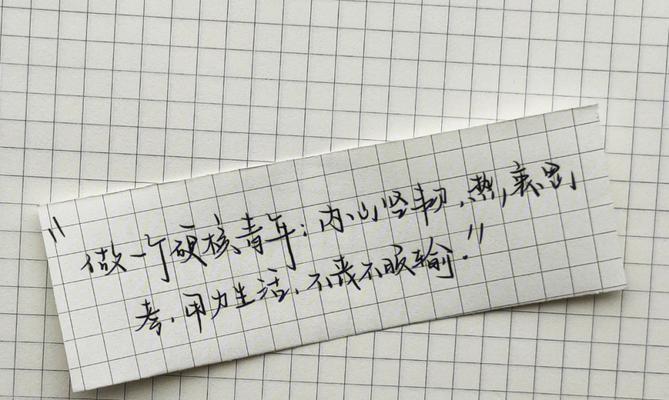 “做一个硬核青年：内心坚韧，热衷思
考，用力生活，不丧不服输.”